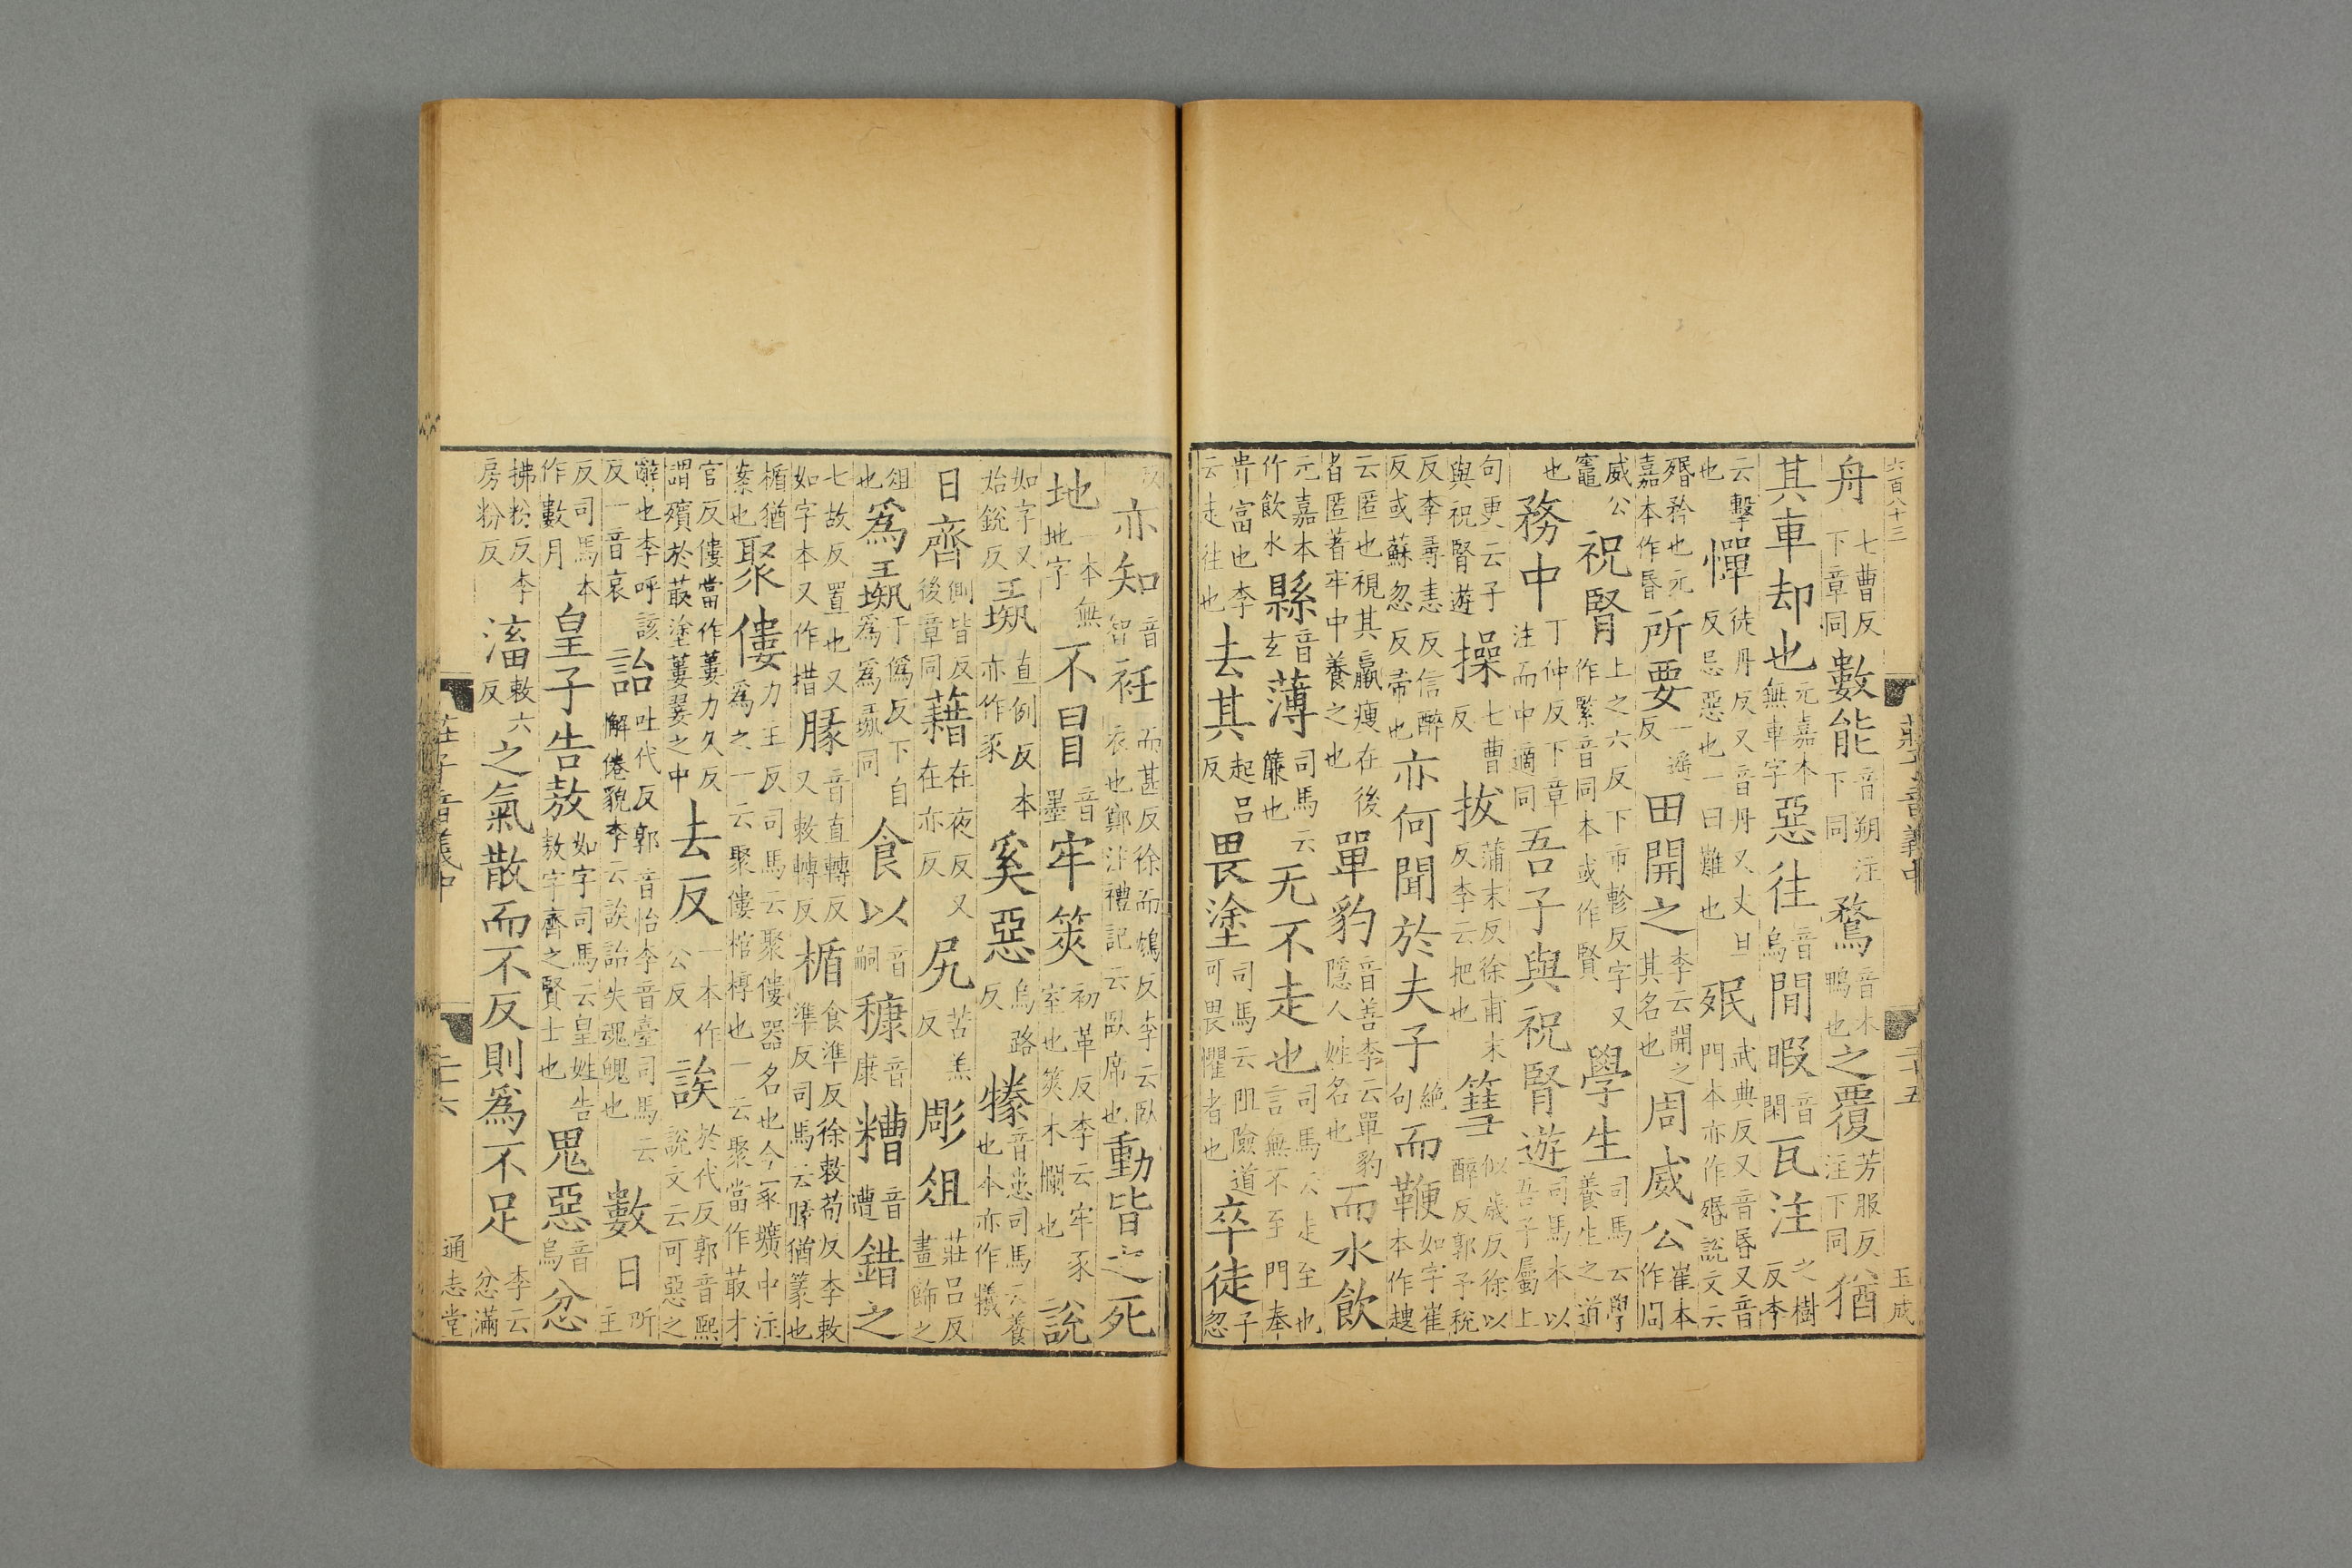 六百八十三 莊子音義中 二十五 玉成
舟 七曹反下章同 數能 音朔注下同 鶩 音木鴨也 之覆 芳服反注下同 猶
其車却也 元嘉本無車字 惡往 音烏 閒暇 音閑 瓦注 之樹反李
云擊也 憚 徒丹反又音丹又丈旦反忌惡也一曰難也 殙 武典反又音昬又音門本亦作殙說文云
殙矜也元嘉本作昬 所要 一遥反 田開之 李云開之其名也 周威公 崔本作周
威公竈 祝腎 上之六反下市軫反字又作緊音同本或作賢 學生 司馬云學養生之道
也 務中 丁仲反下章注而中適同 吾子與祝腎遊 司馬本以吾子屬上
句更云子與祝腎遊 操 七曹反 拔 蒲末反徐甫末反李云把也 篲 似歲反徐以醉反郭予稅
反李尋恚反信醉反或蘇忽反帚也 亦何聞於夫子 絶句 而鞭 如字崔本作趡
云匿也視其羸瘦在後者匿著牢中養之也 單豹 音善李云單豹隱人姓名也 而水飲
元嘉本作飲水 縣 音玄 薄 司馬云簾也 无不走也 司馬云走至也言無不至門奉
貴富也李云走往也 去其 起呂反 畏塗 司馬云阻險道可畏懼者也 卒徒 子忽
反 亦知 音智 衽 而甚反徐而鴆反李云臥衣也鄭注禮記云臥席也 動皆之死
地 一本無地字 不冒 音墨 牢筴 初革反李云牢豕室也筴木欄也 說
如字又始銳反 彘 直例反本亦作豕 奚惡 烏路反 㹖 音患司馬云養也本亦作犧
日齊 側皆反後章同 藉 在夜反又在亦反 尻 苦羔反 彫俎 莊呂反畫飾之
俎也 爲彘 于僞反下自爲爲彘同 食以 音嗣 穅 音康 糟 音遭 錯之
七故反置也又如字本又作措 腞 音直轉反又敕轉反 楯 食準反徐敕荀反李敕準反司馬云腞猶篆也
楯猶案也 聚僂 力主反司馬云聚僂器名也今冢壙中注爲之一云聚僂棺槨也一云聚當作菆才
官反僂當作蔞力久反謂殯於菆塗蔞翣之中 去反 一本作公反 誒 於代反郭音熙說文云可惡之
辭也李呼該反一音哀 詒 吐代反郭音怡李音臺司馬云懈倦貌李云誒詒失魂魄也 數日 所主
反司馬本作數月 皇子告敖 如字司馬云皇姓告敖字齊之賢士也 鬼惡 音烏 忿
拂粉反李房粉反 滀 敕六反 之氣散而不反則爲不足 李云忿滿
莊子音義中 二十六 通志堂